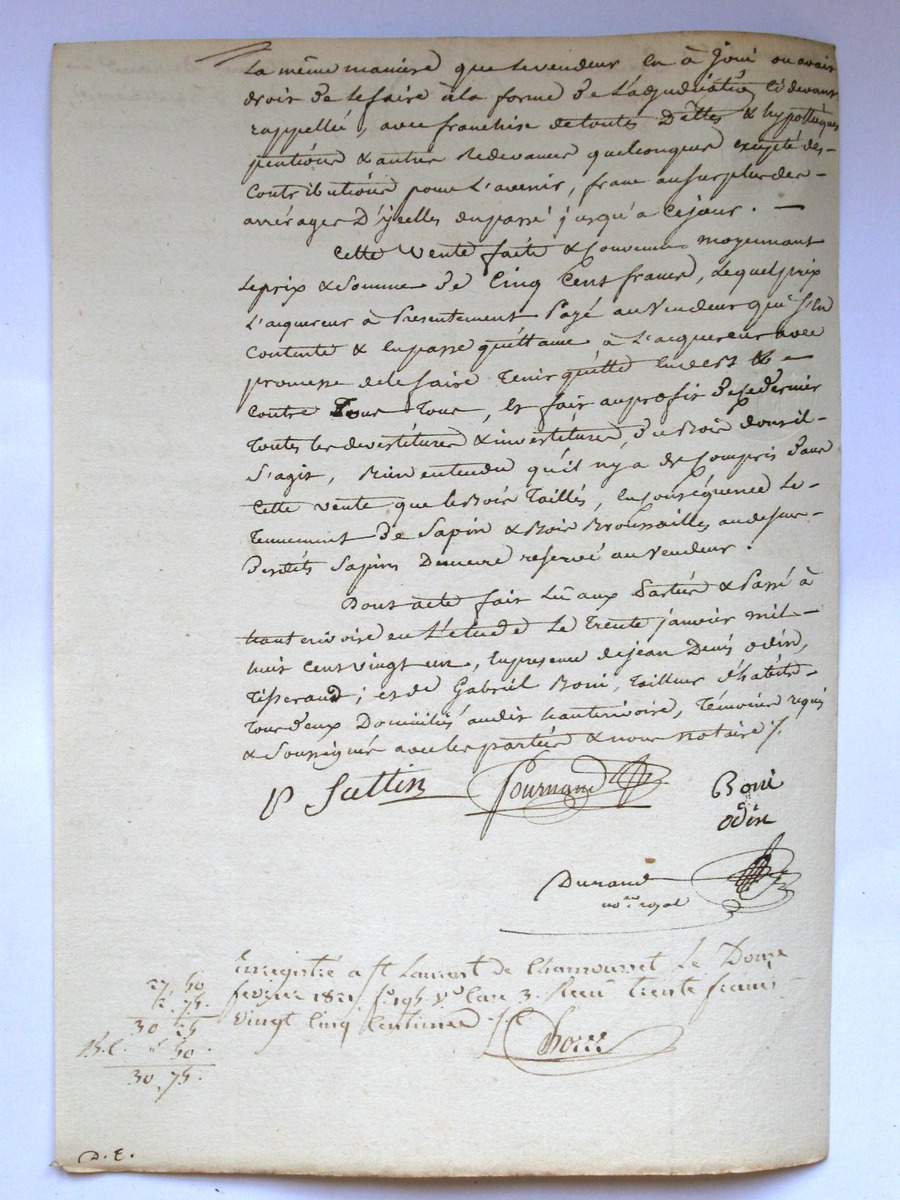 La même maniere que Le vendeur en à Joui ou avait
droit de Le faire à la forme de L'adjudication ci devant
rappellée, avec franchise de toutes Dettes & hypothèques
pentions & autres Redevances quelconques excepté des
Contributions pour L'avenir, franc au surplus des
arrérages D'ycelles du passé jusqu'à ce jour.
Cette Vente faite & Convenue moyennant
Le prix & Somme de Cinq Cent francs, Lequel prix
L'acquereur à Présentement Payé au Vendeur qui s'en
Contente & en passe quittance à L'acquereur avec
promesse de le faire Tenir quitte Envers &
Contre Tous, Et fait au profit de ce dernier
Toutes les devestitures & investitures, du Bois dont il
S'agit, Bien entendu qu'il n'y a de Compris dans
Cette vente que le Bois Taillés, En Conséquence Le
Tennement de Sapin & Bois Broussailles au dessus
desdits Sapins Demeure reservé au Vendeur.
Dont acte fait Lû aux Parties & Passé à
hauterivoire en L'etude Le Trente janvier mil
huit Cent vingt un, En presence de jean Denis odin,
Tisserand; et de Gabriel Boni, Tailleur d'habits
Tous deux Domiciliés audit hauterivoire, Témoins requis
& Soussignés avec les parties & nous notaire /.
P Suttin Fournand
Boni
odin
Durand
no.re royal
Enregistré a St Laurent de Chamousset Le Douze
fevrier 1821 f° 196 v° Case 3. Reçu trente francs
Vingt Cinq Centimes
27 50
2 75
30 25
50
30 75
D. E.